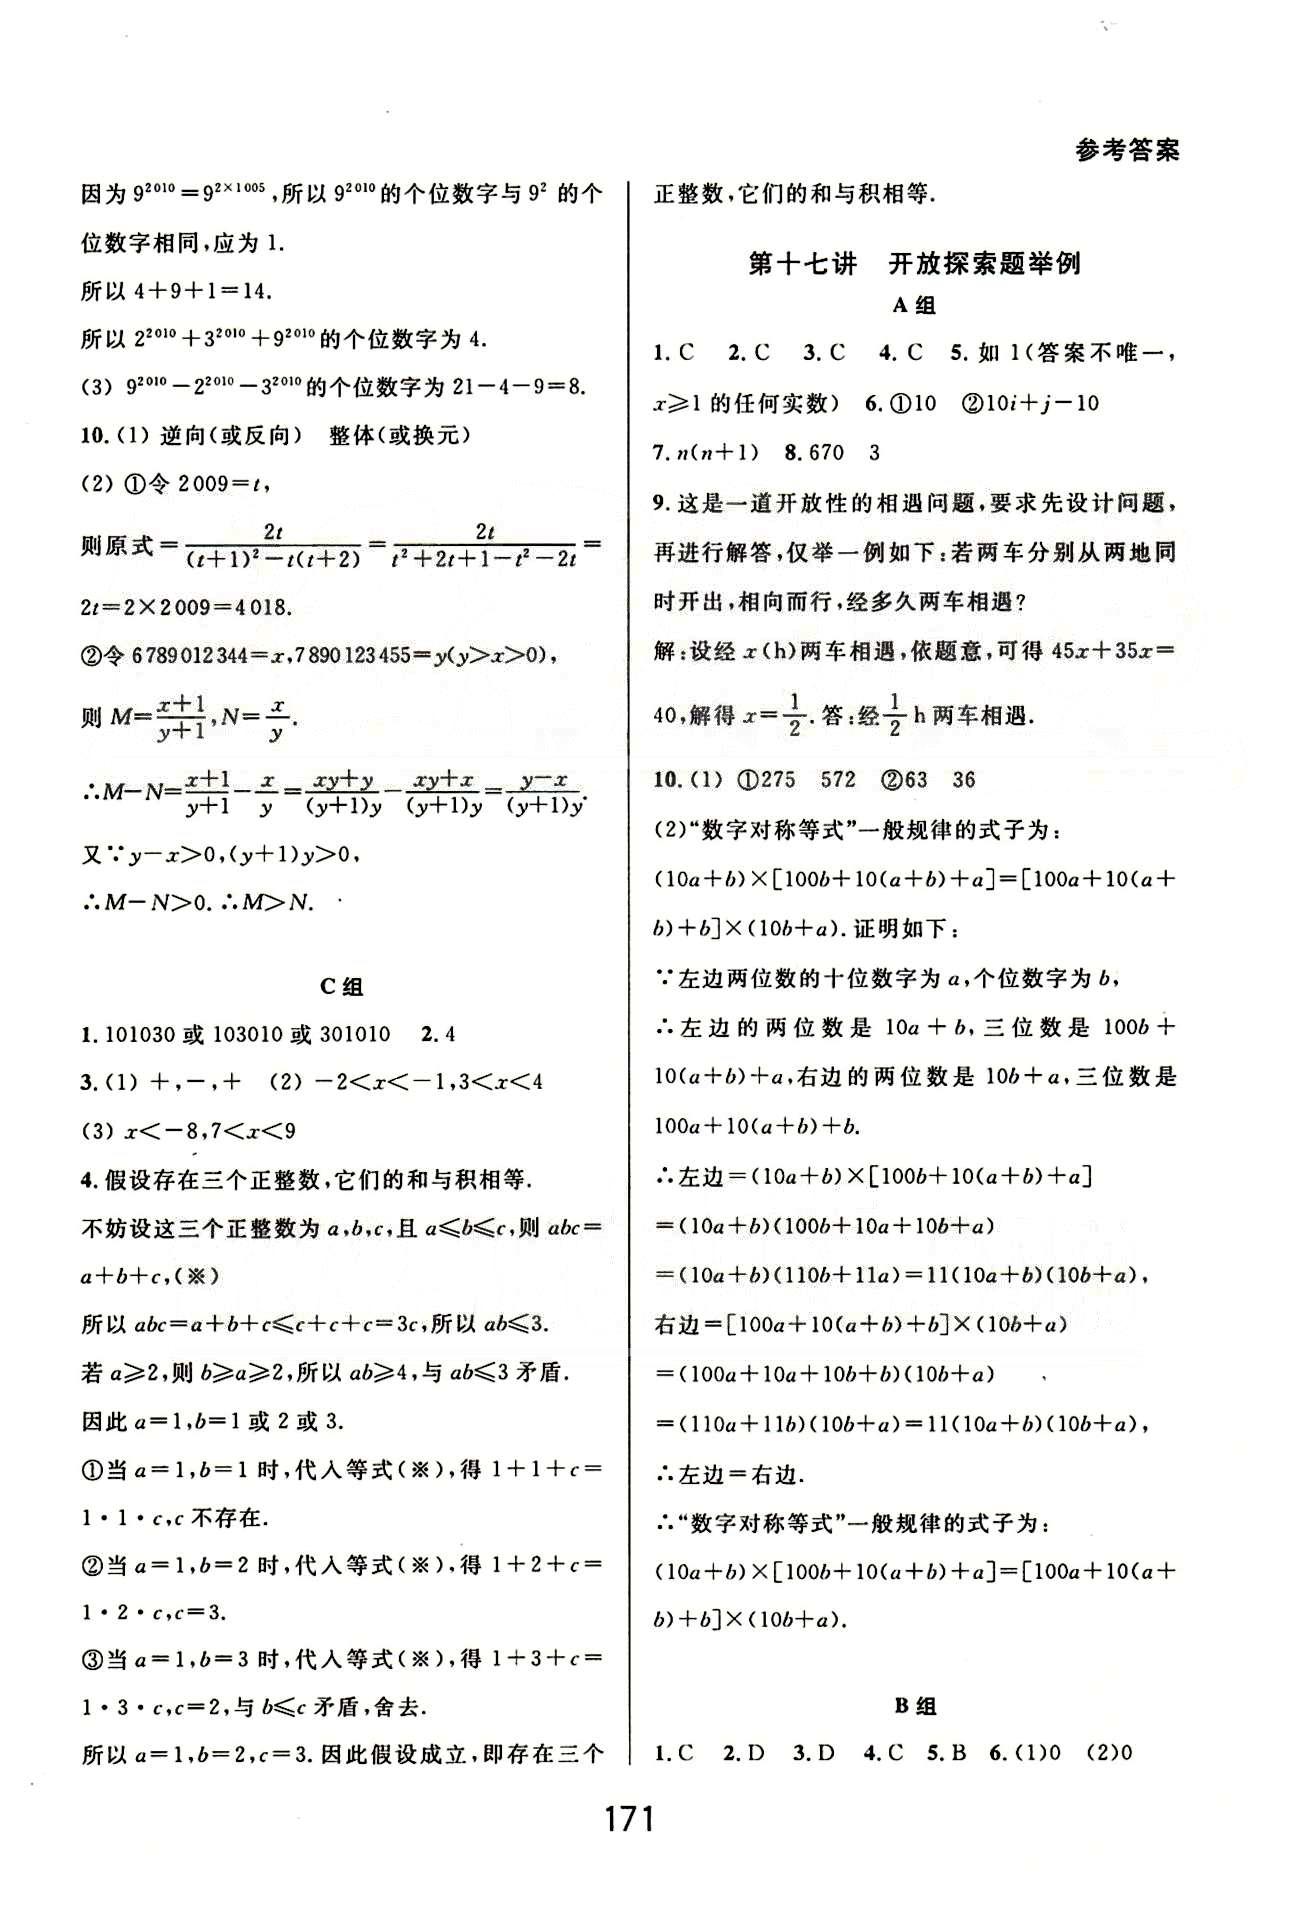 参考答案
因为 9²⁰¹⁰=9²ˣ¹⁰⁰⁵,所以 9²⁰¹⁰的个位数字与 9² 的个
位数字相同,应为 1.
所以 4+9+1=14.
所以 2²⁰¹⁰+3²⁰¹⁰+9²⁰¹⁰的个位数字为 4.
(3) 9²⁰¹⁰-2²⁰¹⁰-3²⁰¹⁰的个位数字为 21-4-9=8.
10.(1) 逆向(或反向) 整体(或换元)
(2) ①令 2009=t,
则原式=2t/((t+1)²-t(t+2))=2t/(t²+2t+1-t²-2t)=
2t=2×2009=4018.
②令 6789012344=x,7890123455=y(y>x>0),
则 M=(x+1)/(y+1),N=x/y.
∴M-N=(x+1)/(y+1)-x/y=(xy+y)/((y+1)y)-(xy+x)/((y+1)y)=(y-x)/((y+1)y).
又∵y-x>0,(y+1)y>0,
∴M-N>0.∴M>N.
C 组
1.101030 或 103010 或 301010 2.4
3.(1) +,-,+ (2) -2<x<-1,3<x<4
(3) x<-8,7<x<9
4.假设存在三个正整数,它们的和与积相等.
不妨设这三个正整数为 a,b,c,且 a⩽b⩽c,则 abc=
a+b+c,(※)
所以 abc=a+b+c⩽c+c+c=3c,所以 ab⩽3.
若 a⩾2,则 b⩾a⩾2,所以 ab⩾4,与 ab⩽3 矛盾.
因此 a=1,b=1 或 2 或 3.
①当 a=1,b=1 时,代入等式(※),得 1+1+c=
1·1·c,c 不存在.
②当 a=1,b=2 时,代入等式(※),得 1+2+c=
1·2·c,c=3.
③当 a=1,b=3 时,代入等式(※),得 1+3+c=
1·3·c,c=2,与 b⩽c 矛盾,舍去.
所以 a=1,b=2,c=3.因此假设成立,即存在三个
正整数,它们的和与积相等.
第十七讲 开放探索题举例
A 组
1.C 2.C 3.C 4.C 5.如 1(答案不唯一,
x⩾1 的任何实数) 6.①10 ②10i+j-10
7.n(n+1) 8.670 3
9.这是一道开放性的相遇问题,要求先设计问题,
再进行解答,仅举一例如下:若两车分别从两地同
时开出,相向而行,经多久两车相遇?
解:设经 x(h)两车相遇,依题意,可得 45x+35x=
40,解得 x=1/2.答:经1/2 h 两车相遇.
10.(1) ①275 572 ②63 36
(2)“数字对称等式”一般规律的式子为:
(10a+b)×[100b+10(a+b)+a]=[100a+10(a+
b)+b]×(10b+a).证明如下:
∵左边两位数的十位数字为 a,个位数字为 b,
∴左边的两位数是 10a+b,三位数是 100b+
10(a+b)+a,右边的两位数是 10b+a,三位数是
100a+10(a+b)+b.
∴左边=(10a+b)×[100b+10(a+b)+a]
=(10a+b)(100b+10a+10b+a)
=(10a+b)(110b+11a)=11(10a+b)(10b+a),
右边=[100a+10(a+b)+b]×(10b+a)
=(100a+10a+10b+b)(10b+a)
=(110a+11b)(10b+a)=11(10a+b)(10b+a),
∴左边=右边.
∴“数字对称等式”一般规律的式子为:
(10a+b)×[100b+10(a+b)+a]=[100a+10(a+
b)+b]×(10b+a).
B 组
1.C 2.D 3.D 4.C 5.B 6.(1)0 (2)0
171